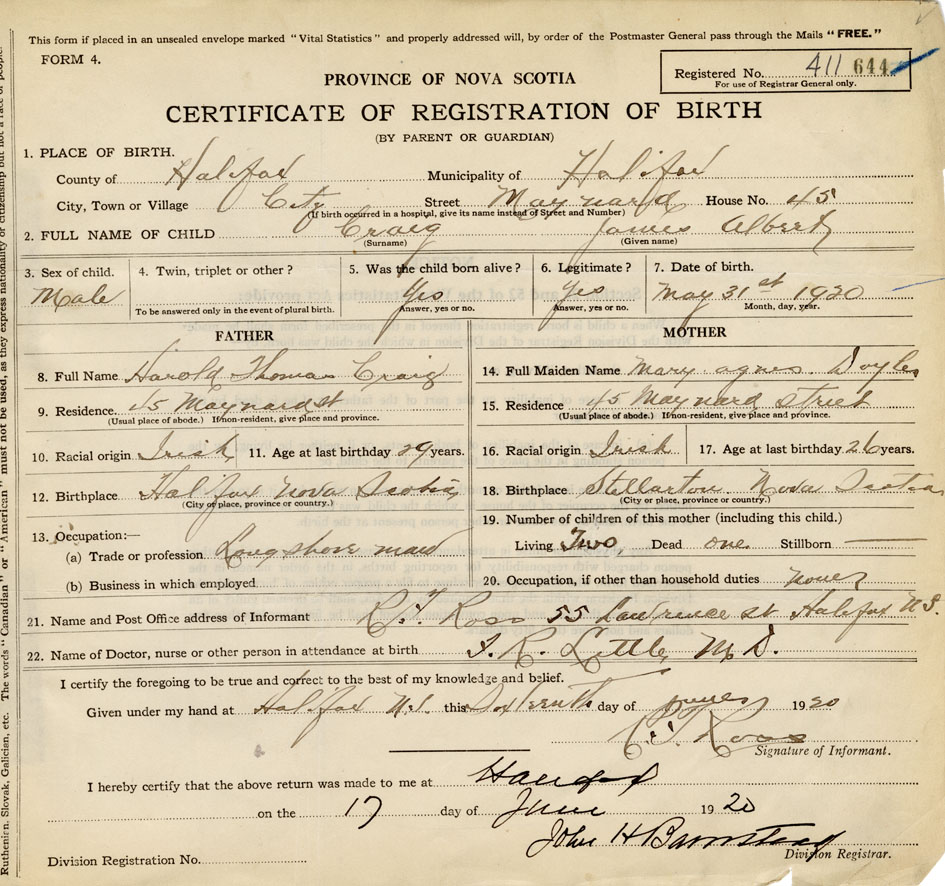 This form if placed in an unsealed envelope marked "Vital Statistics" and properly addressed will, by order of the Postmaster General pass through the Mails "FREE."
FORM 4.
Registered No. 411 644
For use of Registrar General only.
PROVINCE OF NOVA SCOTIA
CERTIFICATE OF REGISTRATION OF BIRTH
(BY PARENT OR GUARDIAN)
1. PLACE OF BIRTH.
County of Halifax Municipality of Halifax
City, Town or Village City Street Maynard House No. 45
(If birth occurred in a hospital, give its name instead of Street and Number)
2. FULL NAME OF CHILD Craig James Albert
(Surname) (Given name)
3. Sex of child. 4. Twin, triplet or other? 5. Was the child born alive? 6. Legitimate? 7. Date of birth.
Male Yes Yes May 31st 1920
To be answered only in the event of plural birth. Answer, yes or no. Answer, yes or no. Month, day, year.
FATHER MOTHER
8. Full Name Harold Thomas Craig
14. Full Maiden Name Mary Agnes Doyle
9. Residence 45 Maynard st
(Usual place of abode.) If non-resident, give place and province.
15. Residence 45 Maynard Street
(Usual place of abode.) If non-resident, give place and province.
10. Racial origin Irish 11. Age at last birthday 29 years.
16. Racial origin Irish 17. Age at last birthday 26 years.
12. Birthplace Halifax Nova Scotia
(City or place, province or country.)
18. Birthplace Stellarton Nova Scotia
(City or place, province or country.)
13. Occupation:—
(a) Trade or profession Longshore man
(b) Business in which employed
19. Number of children of this mother (including this child.)
Living Two Dead one Stillborn
20. Occupation, if other than household duties
21. Name and Post Office address of Informant R. T. Ross 55 Lawrence st Halifax N.S.
22. Name of Doctor, nurse or other person in attendance at birth F. R. Little M.D.
I certify the foregoing to be true and correct to the best of my knowledge and belief.
Given under my hand at Halifax N.S. this day of June 1920
R. T. Ross
Signature of Informant.
I hereby certify that the above return was made to me at Halifax
on the 17 day of June 1920
John H Barnstead
Division Registrar.
Division Registration No.
Ruthenian, Slovak, Galician, etc. The words "Canadian" or "American" must not be used, as they express nationality or citizenship but not a race of people.